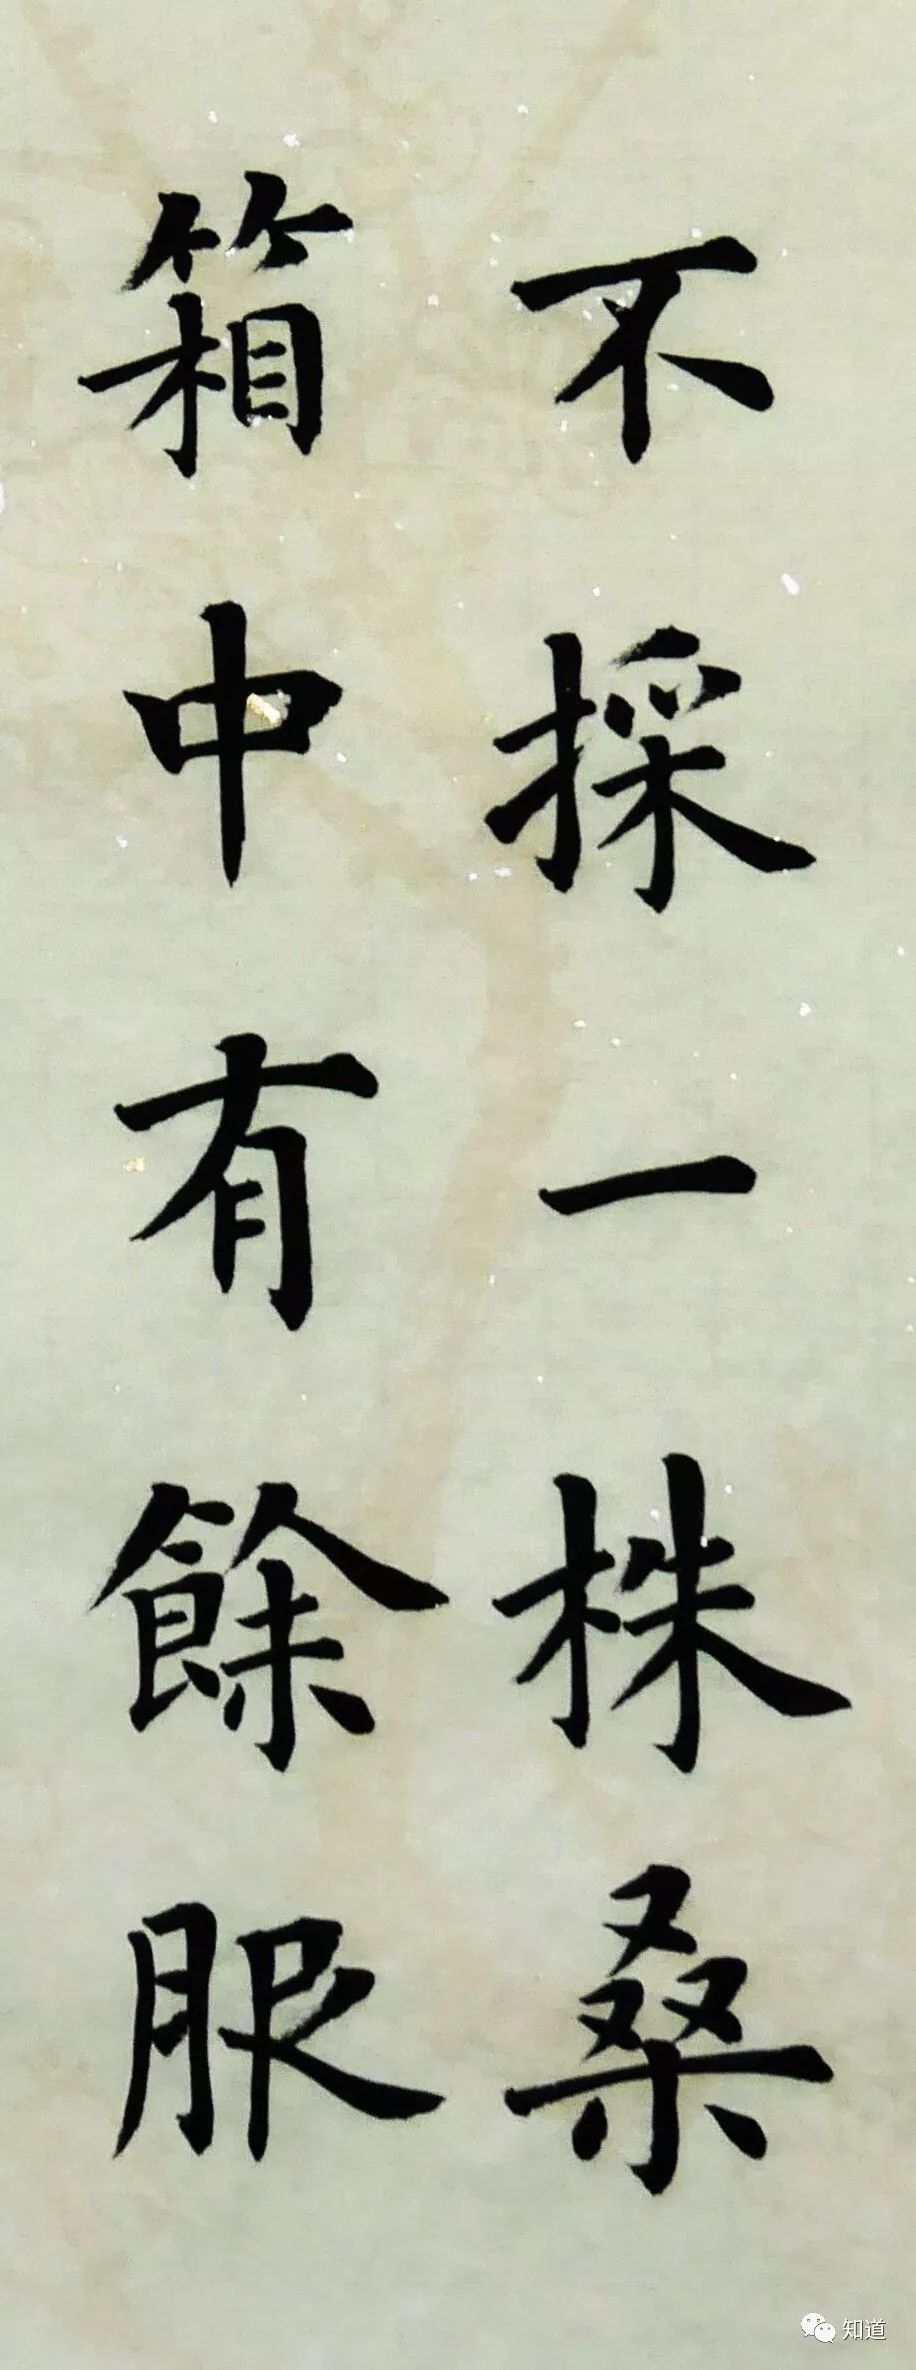 不採一株桑
箱中有餘服
知道